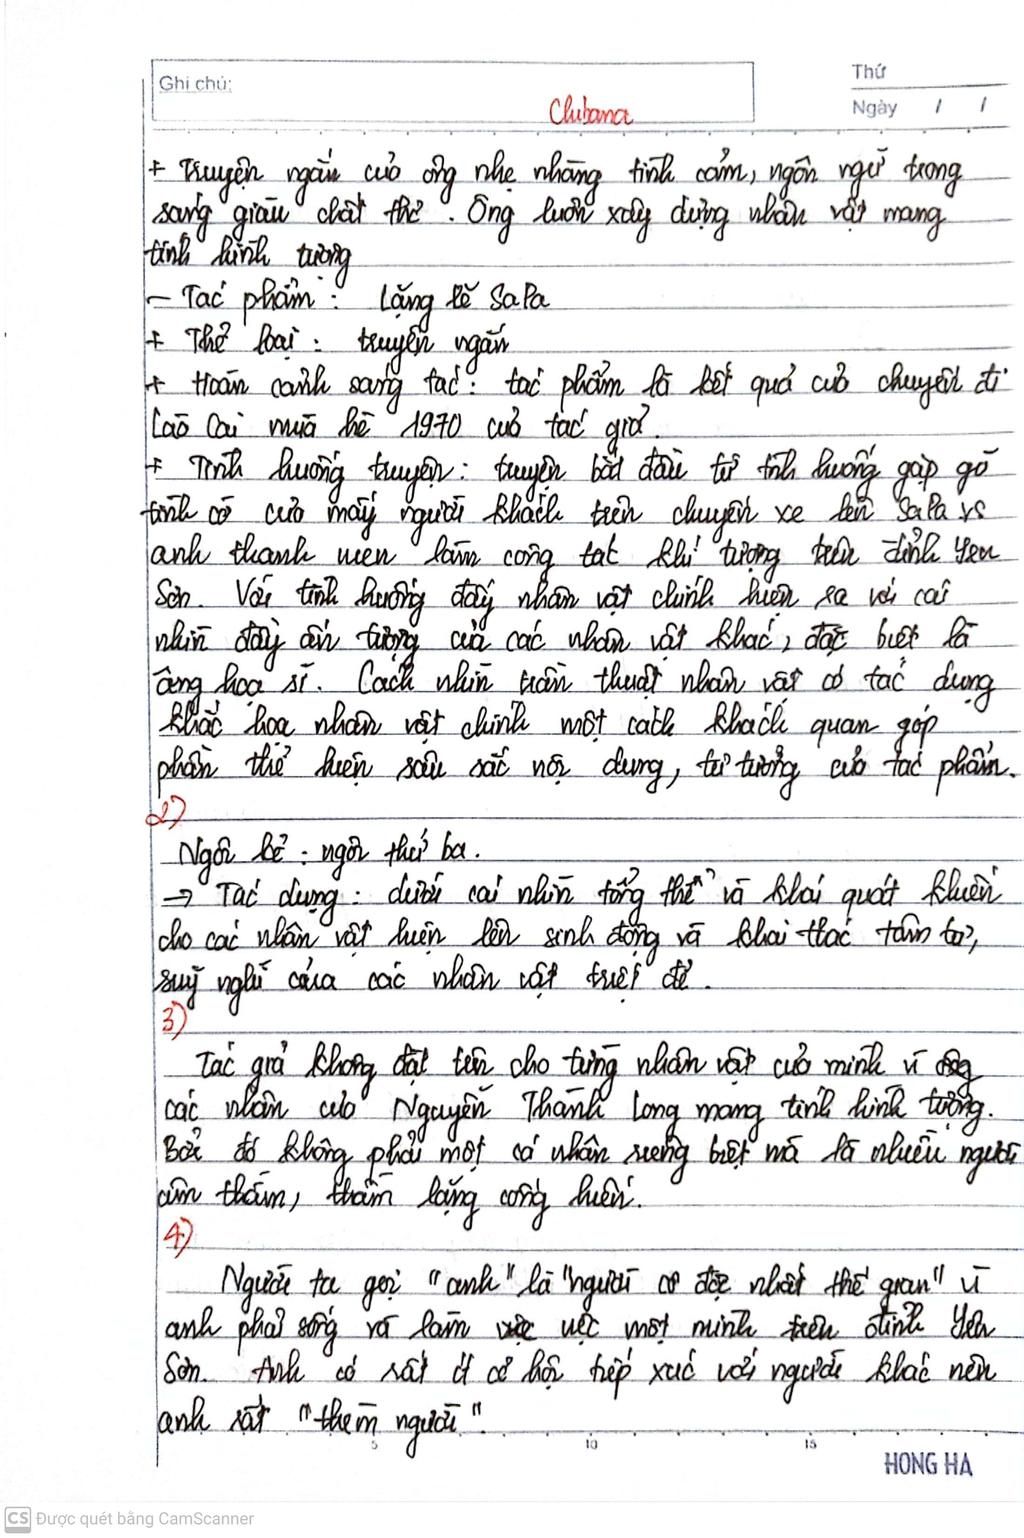 Ghi chú:
Thứ
Ngày / /
Clubana
+ Truyện ngắn của ông nhẹ nhàng tình cảm, ngôn ngữ trong
sáng giàu chất thơ. Ông luôn xây dựng nhân vật mang
tính hình tượng
- Tác phẩm: Lặng lẽ SaPa
+ Thể loại: truyện ngắn
+ Hoàn cảnh sáng tác: tác phẩm là kết quả của chuyến đi
Lào Cai mùa hè 1970 của tác giả.
+ Tình huống truyện: truyện bắt đầu từ tình huống gặp gỡ
tình cờ của mấy người khách trên chuyến xe lên SaPa vs
anh thanh niên làm công tác khí tượng trên đỉnh Yên
Sơn. Với tình huống đấy nhân vật chính hiện ra với cái
nhìn đầy ấn tượng của các nhân vật khác, đặc biệt là
ông họa sĩ. Cách nhìn trần thuật nhân vật có tác dụng
khắc họa nhân vật chính một cách khách quan góp
phần thể hiện sâu sắc nội dung, tư tưởng của tác phẩm.
2)
Ngôi kể: ngôi thứ ba.
→ Tác dụng: dưới cái nhìn tổng thể và khái quát khiến
cho các nhân vật hiện lên sinh động và khai thác tâm tư,
suy nghĩ của các nhân vật triệt để.
3)
Tác giả không đặt tên cho từng nhân vật của mình vì
các nhân của Nguyễn Thành Long mang tính hình tượng.
Bởi đó không phải một cá nhân riêng biệt mà là nhiều người
âm thầm, thầm lặng cống hiến.
4)
Người ta gọi "anh" là "người cô độc nhất thế gian" vì
anh phải sống và làm việc một mình trên đỉnh Yên
Sơn. Anh có rất ít cơ hội tiếp xúc với người khác nên
anh rất "thèm người".
5 10 15
HONG HA
CS Được quét bằng CamScanner